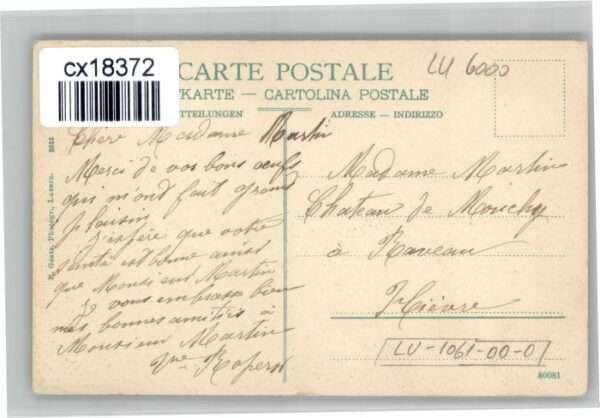 cx18372
CARTE POSTALE
TKARTE — CARTOLINA POSTALE
TTEILUNGEN
ADRESSE — INDIRIZZO
LU 6000
Chère Madame Martin
Merci de vos bons oeufs
qui m'ont fait grand
plaisir
J'espère que votre
santé est bonne ainsi
que Monsieur Martin
Je vous embrasse bien
mes bonnes amitiés à
Monsieur Martin
Madame Martin
Chateau de Mouchy
à Raveau
Nièvre
LU-1061-00-0
80081
Luzern.